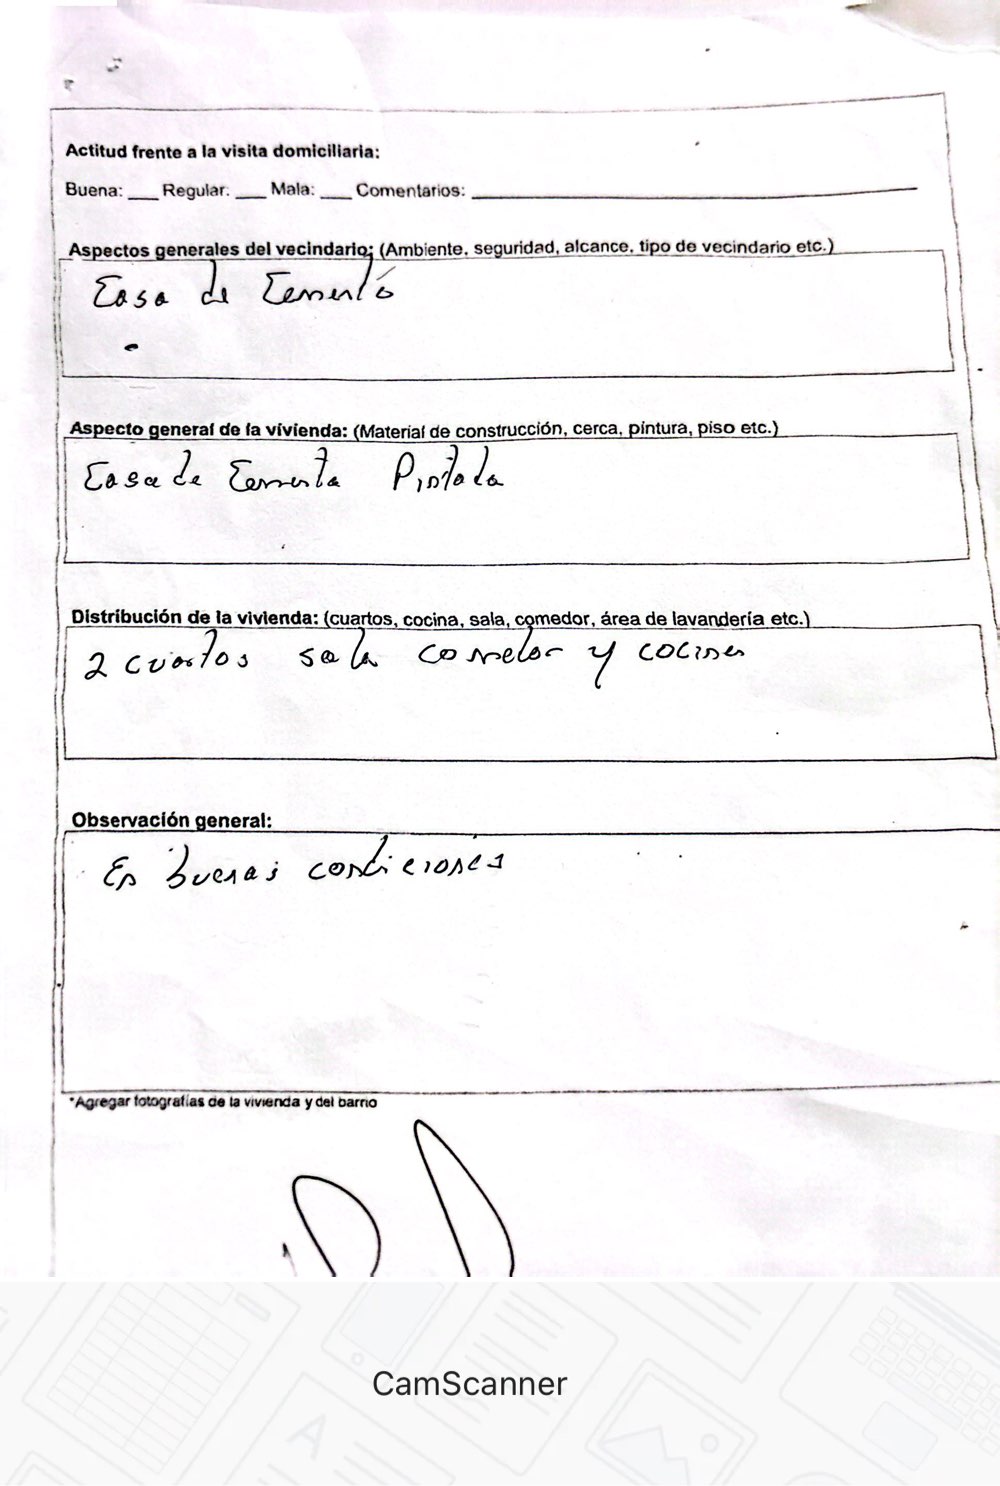 Actitud frente a la visita domiciliaria:
Buena: ___ Regular: ___ Mala: ___ Comentarios: ___
Aspectos generales del vecindario: (Ambiente, seguridad, alcance, tipo de vecindario etc.)
Casa de Cemento
Aspecto general de la vivienda: (Material de construcción, cerca, pintura, piso etc.)
Casa de Cemento Pintada
Distribución de la vivienda: (cuartos, cocina, sala, comedor, área de lavandería etc.)
2 cuartos sala comedor y cocina
Observación general:
En buenas condiciones
*Agregar fotografías de la vivienda y del barrio
CamScanner